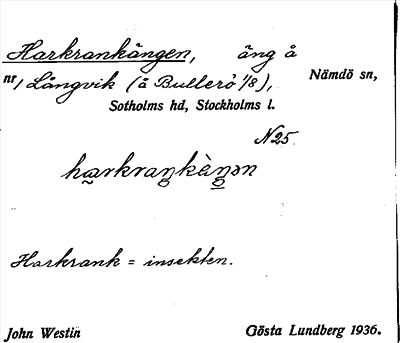 Harkrankängen, äng å
nr 1 Långvik (å Bullerö 1/8),
Nämdö sn,
Sotholms hd, Stockholms l.
N25.
harkraŋkèŋən
Harkrank = insekten.
John Westin
Gösta Lundberg 1936.